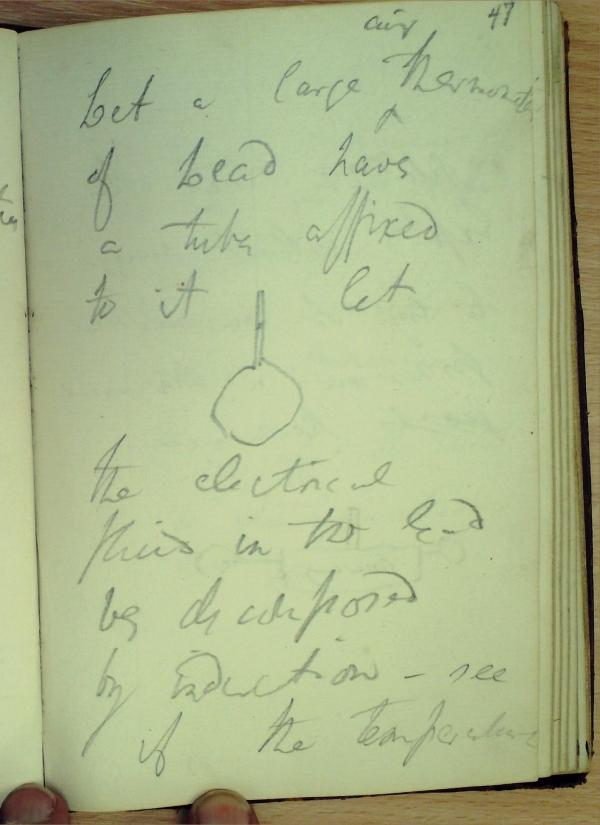 47
air
Let a large Thermometer
of Lead have
a tube affixed
to it let
the electrical
fluid in the Lead
be decomposed
by induction - see
if the temperature